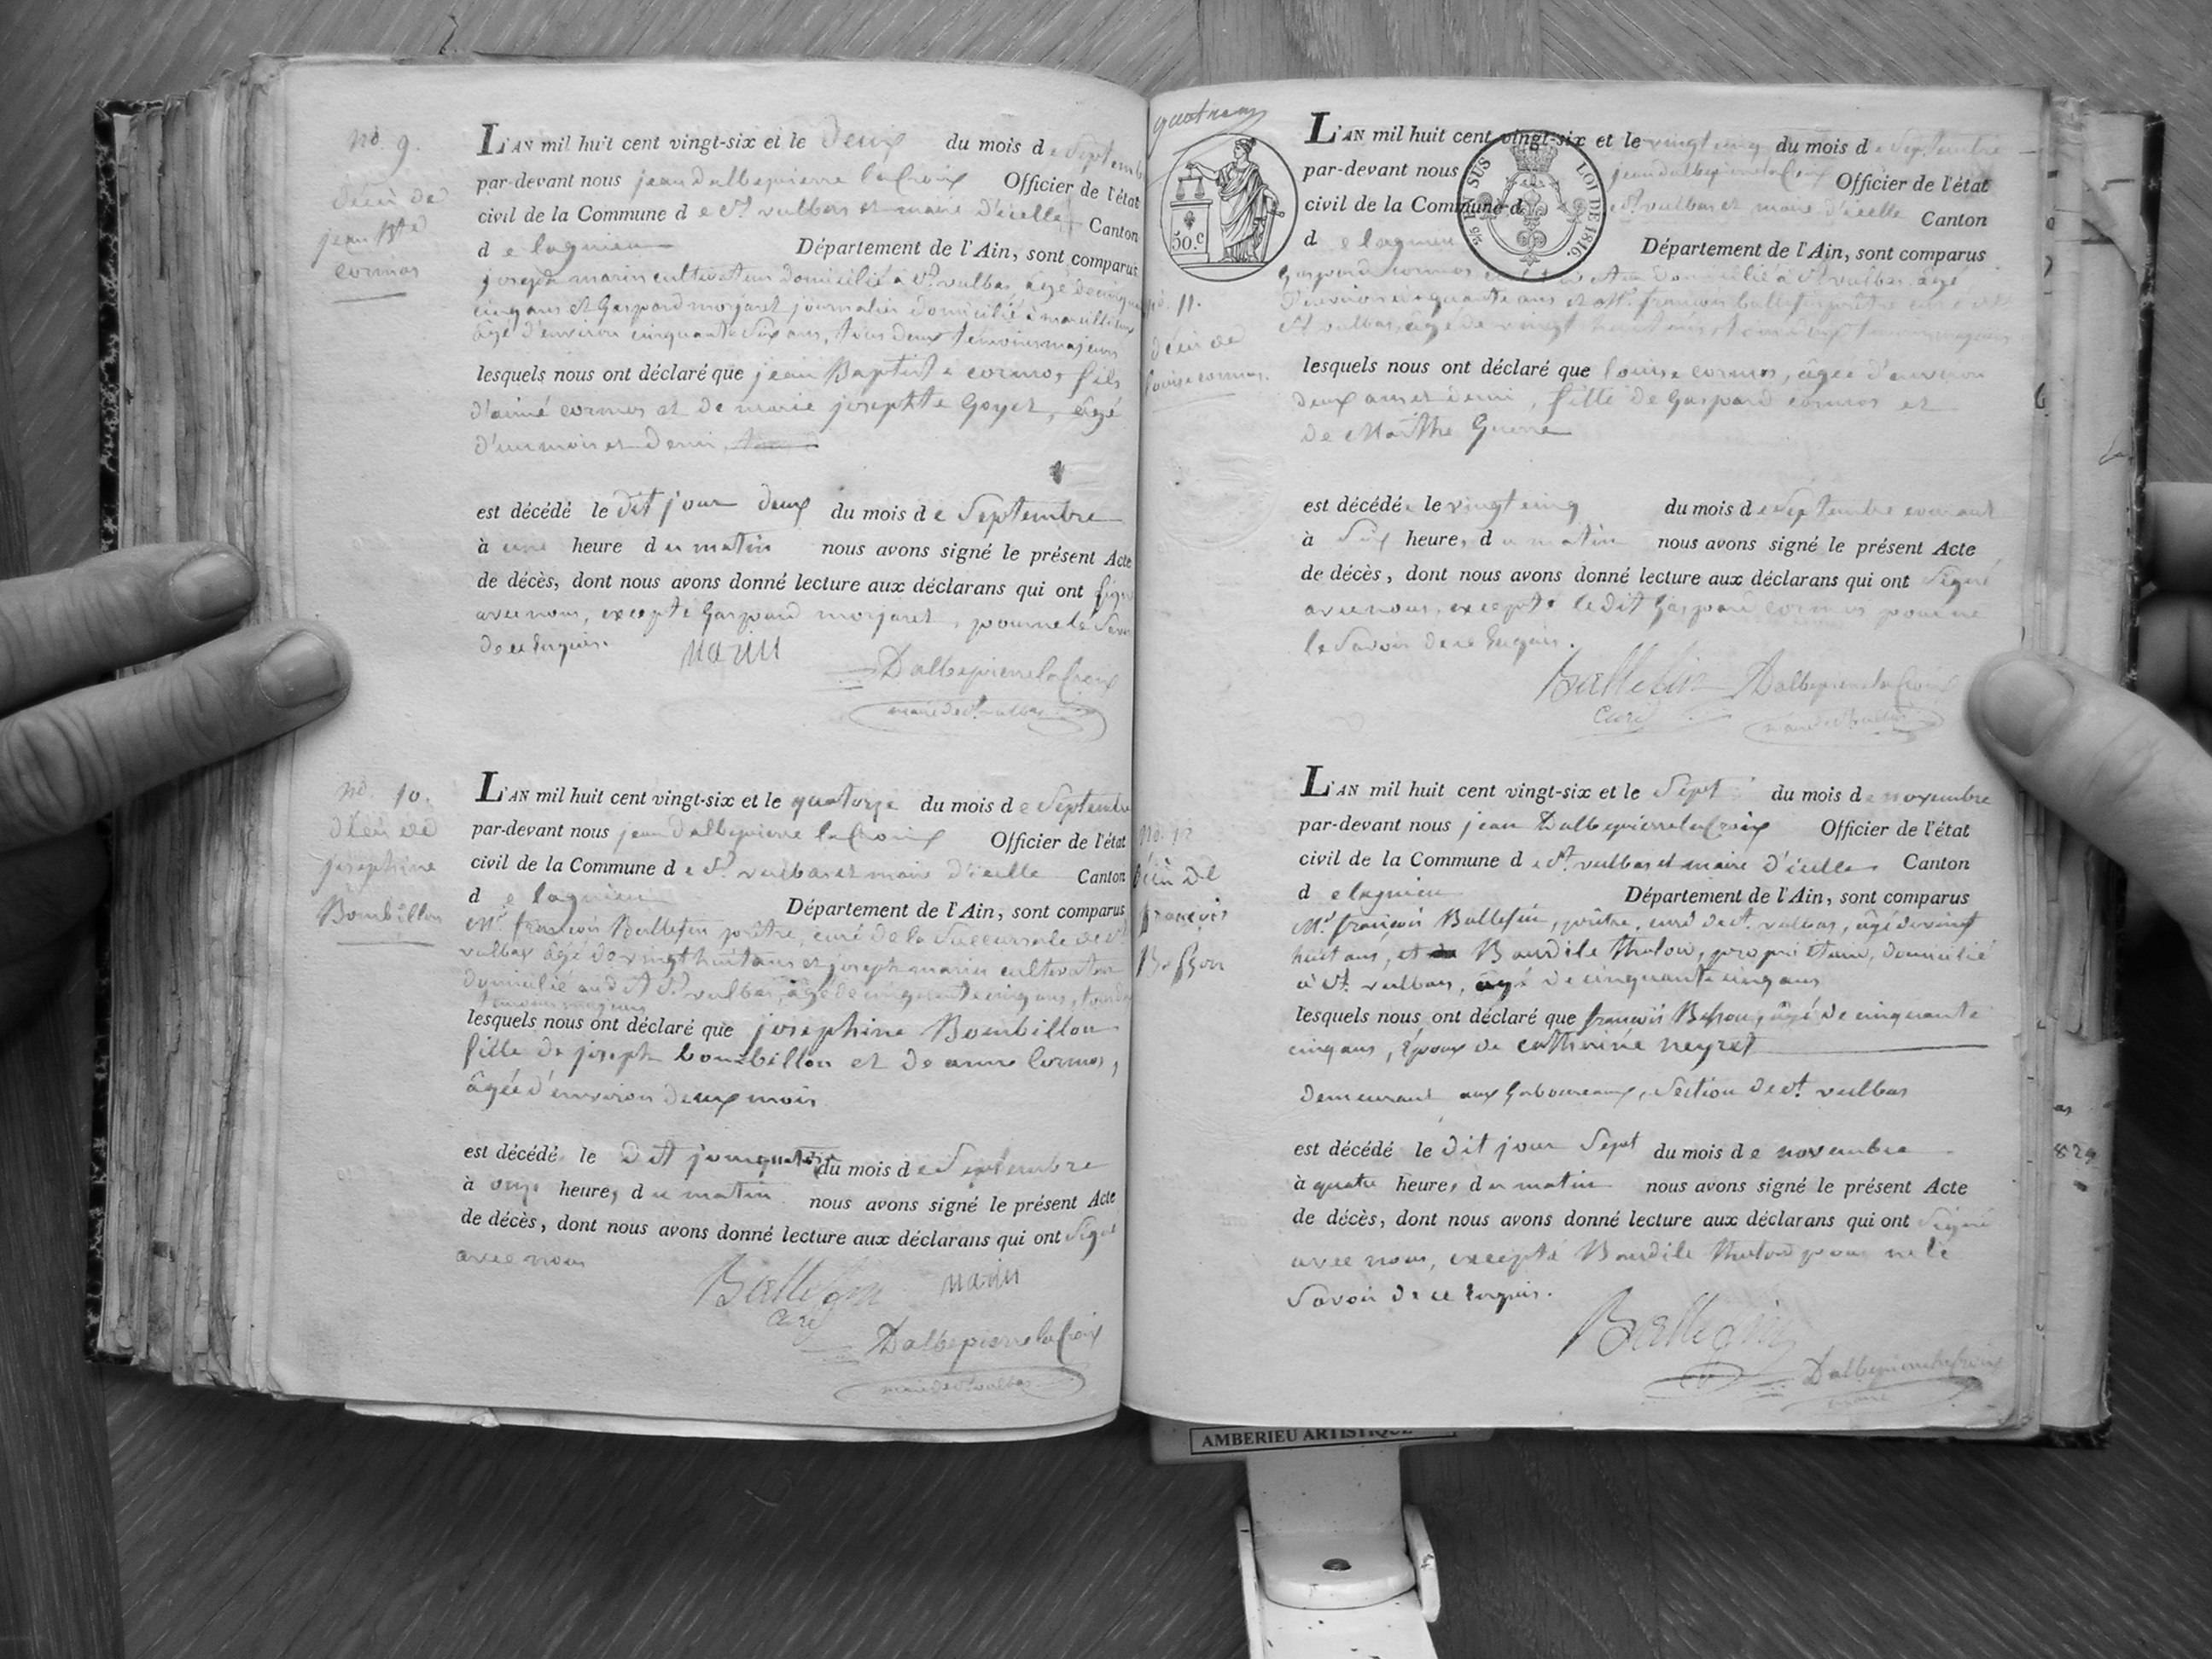 nd. 9.
décès de
jean Bte
cormos
L'AN mil huit cent vingt-six et le deux du mois de Septemb
par-devant nous jean Dalbepierre laCroix Officier de l'état
civil de la Commune de St. vulbas et maire d'icelle Canton
de lagnieu Département de l'Ain, sont comparus
joseph marin cultivateur domicilié à St. vulbas, âgé de cinqu
cinq ans et Gaspard morgaret journalier domicilié à
âgé d'environ cinquante six ans, tous deux témoins majeurs
lesquels nous ont déclaré que jean Baptiste cormos, fils
d'aimé cormos et de marie josephte Goyet, âgé
d'un mois et demi
est décédé le dit jour deux du mois de Septembre
à une heure du matin nous avons signé le présent Acte
de décès, dont nous avons donné lecture aux déclarans qui ont signé
avec nous, excepté Gaspard morgaret, pour ne le Savoir
de ce Enquis.
Marin
Dalbepierre laCroix
maire de St. vulbas
nd. 10.
décès de
josephine
Bombillon
L'AN mil huit cent vingt-six et le quatorze du mois de Septembre
par-devant nous jean Dalbepierre laCroix Officier de l'état
civil de la Commune de St. vulbas et maire d'icelle Canton
de lagnieu Département de l'Ain, sont comparus
Mr. françois Ballefin prêtre, curé de la Succursale de St.
vulbas âgé de vingt huit ans et joseph marin cultivateur
domicilié au dit St. vulbas, âgé de cinquante cinq ans, tous d
témoins majeurs
lesquels nous ont déclaré que josephine Bombillon
fille de joseph bombillon et de anne Cormos,
âgée d'environ deux mois
est décédé le dit jour quatorze du mois de Septembre
à onze heures du matin nous avons signé le présent Acte
de décès, dont nous avons donné lecture aux déclarans qui ont Signé
avec nous
Ballefin Marin
curé
Dalbepierre laCroix
maire de St. vulbas
50.c
SUS LOI DE 1816.
nd. 11.
décès de
louise cormos.
L'AN mil huit cent vingt-six et le vingt cinq du mois de Septembre
par-devant nous jean Dalbepierre laCroix Officier de l'état
civil de la Commune de St. vulbas et maire d'icelle Canton
de lagnieu Département de l'Ain, sont comparus
Gaspard cormos domicilié à St. vulbas, âgé
d'environ cinquante ans et Mr. françois ballefin prêtre curé de
St. vulbas, âgé de vingt huit ans, tous deux témoins majeurs
lesquels nous ont déclaré que louise cormos, âgée d'environ
deux ans et demi, fille de Gaspard cormos et
de Marthe Guerre
est décédée le vingt cinq du mois de Septembre courant
à Six heures du matin nous avons signé le présent Acte
de décès, dont nous avons donné lecture aux déclarans qui ont Signé
avec nous, excepté le dit Gaspard cormos pour ne
le Savoir de ce Enquis.
Ballefin Dalbepierre laCroix
curé maire de St. vulbas
nd. 12
décès de
françois
Besson
L'AN mil huit cent vingt-six et le Sept du mois de novembre
par-devant nous jean Dalbepierre laCroix Officier de l'état
civil de la Commune de St. vulbas et maire d'icelle Canton
de lagnieu Département de l'Ain, sont comparus
Mr. françois Ballefin, prêtre, curé de St. vulbas, âgé de vingt
huit ans, et Baudile tholon, propriétaire, domicilié
à St. vulbas, âgé de cinquante cinq ans
lesquels nous ont déclaré que françois Besson, âgé de cinquante
cinq ans, Époux de catherine neyret
demeurant aux Gaboureaux, Section de St. vulbas
est décédé le dit jour Sept du mois de novembre
à quatre heures du matin nous avons signé le présent Acte
de décès, dont nous avons donné lecture aux déclarans qui ont Signé
avec nous, excepté Baudile tholon pour ne le
Savoir de ce Enquis.
Ballefin
Dalbepierre laCroix
maire
829
AMBERIEU ARTISTIQUE